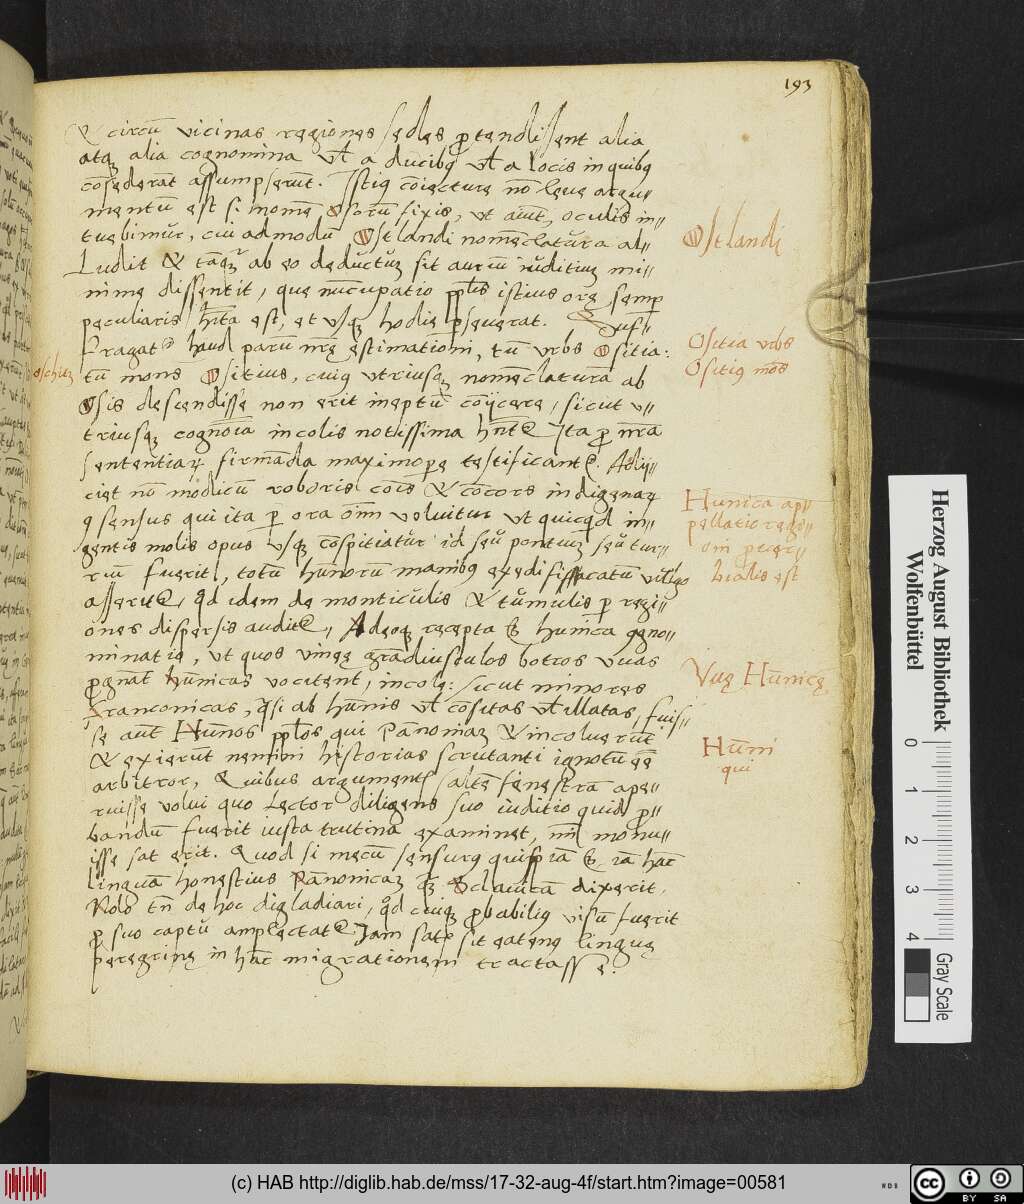 193
& circū vicinas regiones sedes ꝓtendissent alia
atqꝫ alia cognomina vł a ducibꝯ vł a locis in quibꝯ
cōsederat assumpserūt. Istiꝯ cōiecture nō leue argu//
mentū est si nomē Osorū fixis, ut aiūt, oculis in//
tuebimur, cui admodū Ostlandi nomēclatura al//
Ludit & tāqꝫ ab eo deductuꝫ sit auriū iuditiuꝫ mi//
nime dissentit, que nūcupatio ppłis istius ore semꝑ
peculiaris hīta est, et vsqꝫ hodie ꝑseuerat. Suf//
fragat haud parū nr̄e estimationi, tū vrbs Ositia:
tū mons Ositius, cuiꝯ vtriusqꝫ nomēclaturā ab
Osis descendisse non erit ineptū cōijcere, sicut v//
triusqꝫ cognōīa incolis notissima hn̄t Ita ꝓ nr̄a
sententiaꝝ firmāda maximope testificant. Adij//
ciet nō modicū roboris cōis & cōcors indigenaꝝ
ꝯsensus qui ita ꝑ ora oīm voluitur ut quicqd in//
gentis molis opus vsqꝫ cōspitiatur id seu pontiuꝫ seu tur//
riū fuerit, totū hūnorū manibꝯ exedifificatū vulgo
asserit, qd idem de monticulis & tumulis ꝑ regi//
ones dispersis audit// Adeoqꝫ recepta ē hunica ꝯgno//
minatio, ut quos vineę grādiusculos botros vuas
ꝓgnāt hūnicas vocitent, incolę: sicut minores
Franconicas, qsi ab hūnis vł cōsitas vł illatas, fuis//
se aūt Hūnos ppłos qui Pānoniaꝫ & incoluerūt
& exierūt nemini historias scrutanti ignotū eē
arbitror, Quibus argumentꝭ saltē fenestrā ape//
ruisse volui quo Lector diligens suo iuditio quid ꝓ//
bandū fuerit iusta trutina examinet, mī monu//
isse sat erit. Quod si mecū sensurꝯ quispiā ē iā hāc
linguā honestius Pānonicaꝫ qꝫ Sclauicā dixerit.
Nolo tn̄ de hoc digladiari, qd cuiqꝫ ꝓbabiliꝯ visū fuerit
ꝓ suo captū amplectat Iam satꝭ sit eatenꝯ linguę
peregrinę in hāc migrationem tractasse.
Oschitz
Ostlandi
Ositia vrbs
Ositiꝯ mōs
Hunica ap//
pellatio regio//
oīn ꝓuer//
bialis est
Vuę Hūnicę
Hūni
qui
Herzog August Bibliothek
Wolfenbüttel
0 1 2 3 4
Gray Scale
(c) HAB http://diglib.hab.de/mss/17-32-aug-4f/start.htm?image=00581
WDB
cc
BY SA